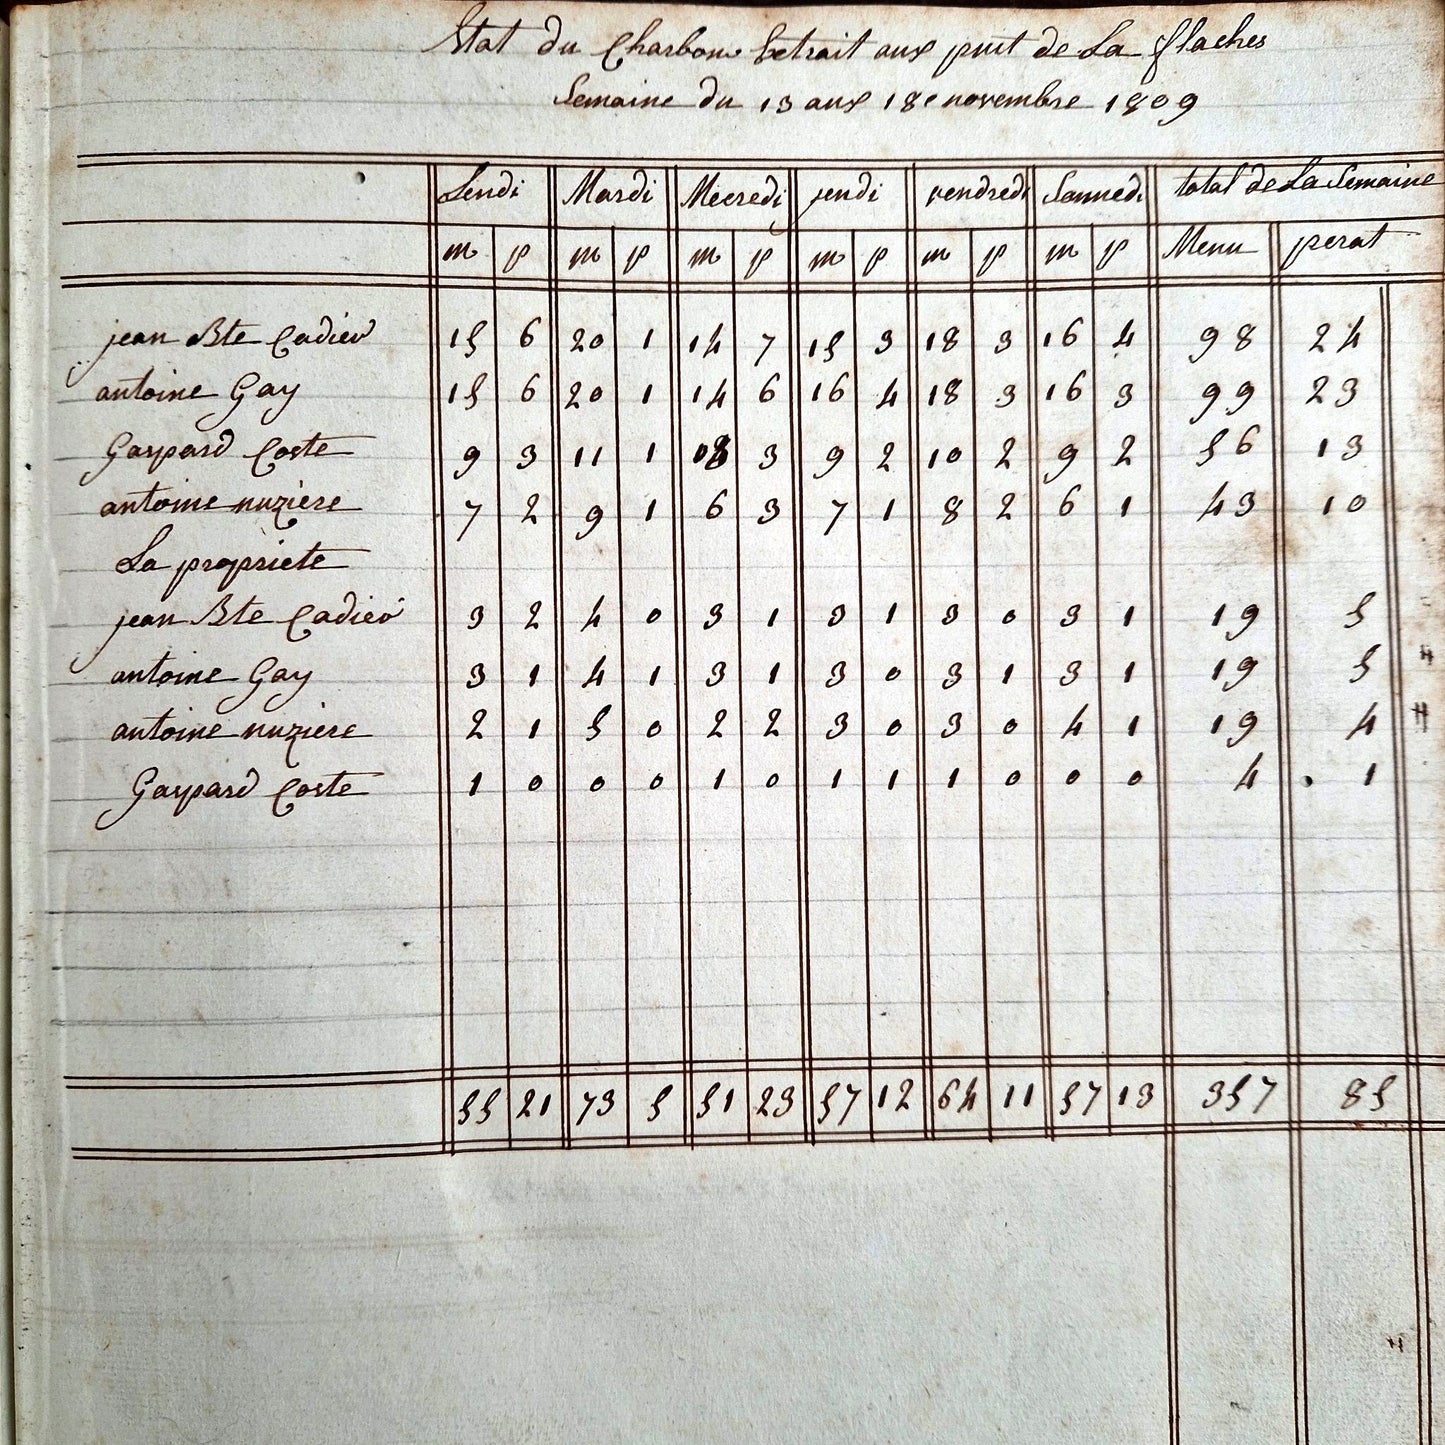 Etat du Charbon Extrait aux puit de La flaches
Semaine du 13 aux 18e novembre 1809
Lundi Mardi Mecredi jeudi vendredi Sammedi total de La Semaine
m p m p m p m p m p m p Menu perat
jean Bte Cadier 15 6 20 1 14 7 15 3 18 3 16 4 98 24
antoine Gay 15 6 20 1 14 6 16 4 18 3 16 3 99 23
Gaspard Coste 9 3 11 1 08 3 9 2 10 2 9 2 56 13
antoine nuziere 7 2 9 1 6 3 7 1 8 2 6 1 43 10
La propriete
jean Bte Cadier 3 2 4 0 3 1 3 1 3 0 3 1 19 5
antoine Gay 3 1 4 1 3 1 3 0 3 1 3 1 19 5
antoine nuziere 2 1 5 0 2 2 3 0 3 0 4 1 19 4
Gaspard Coste 1 0 0 0 1 0 1 1 1 0 0 0 4 . 1
55 21 73 5 51 23 57 12 64 11 57 13 357 85